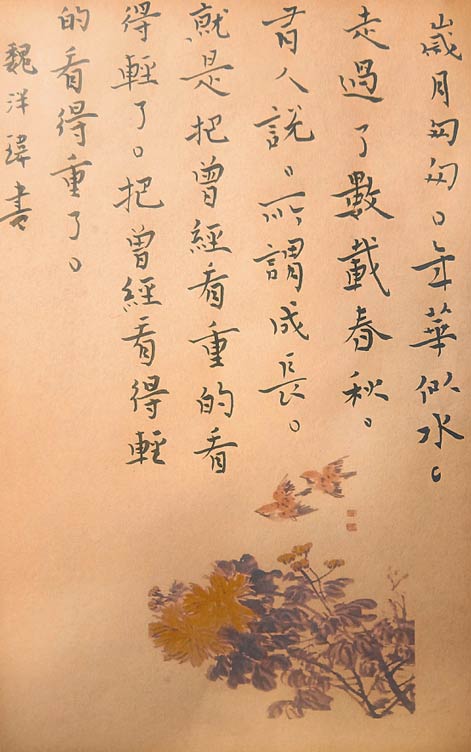 歲月匆匆。年華似水。
走過了數載春秋。
有人說。所謂成長。
就是把曾經看重的看
得輕了。把曾經看得輕
的看得重了。
魏洋瑋書